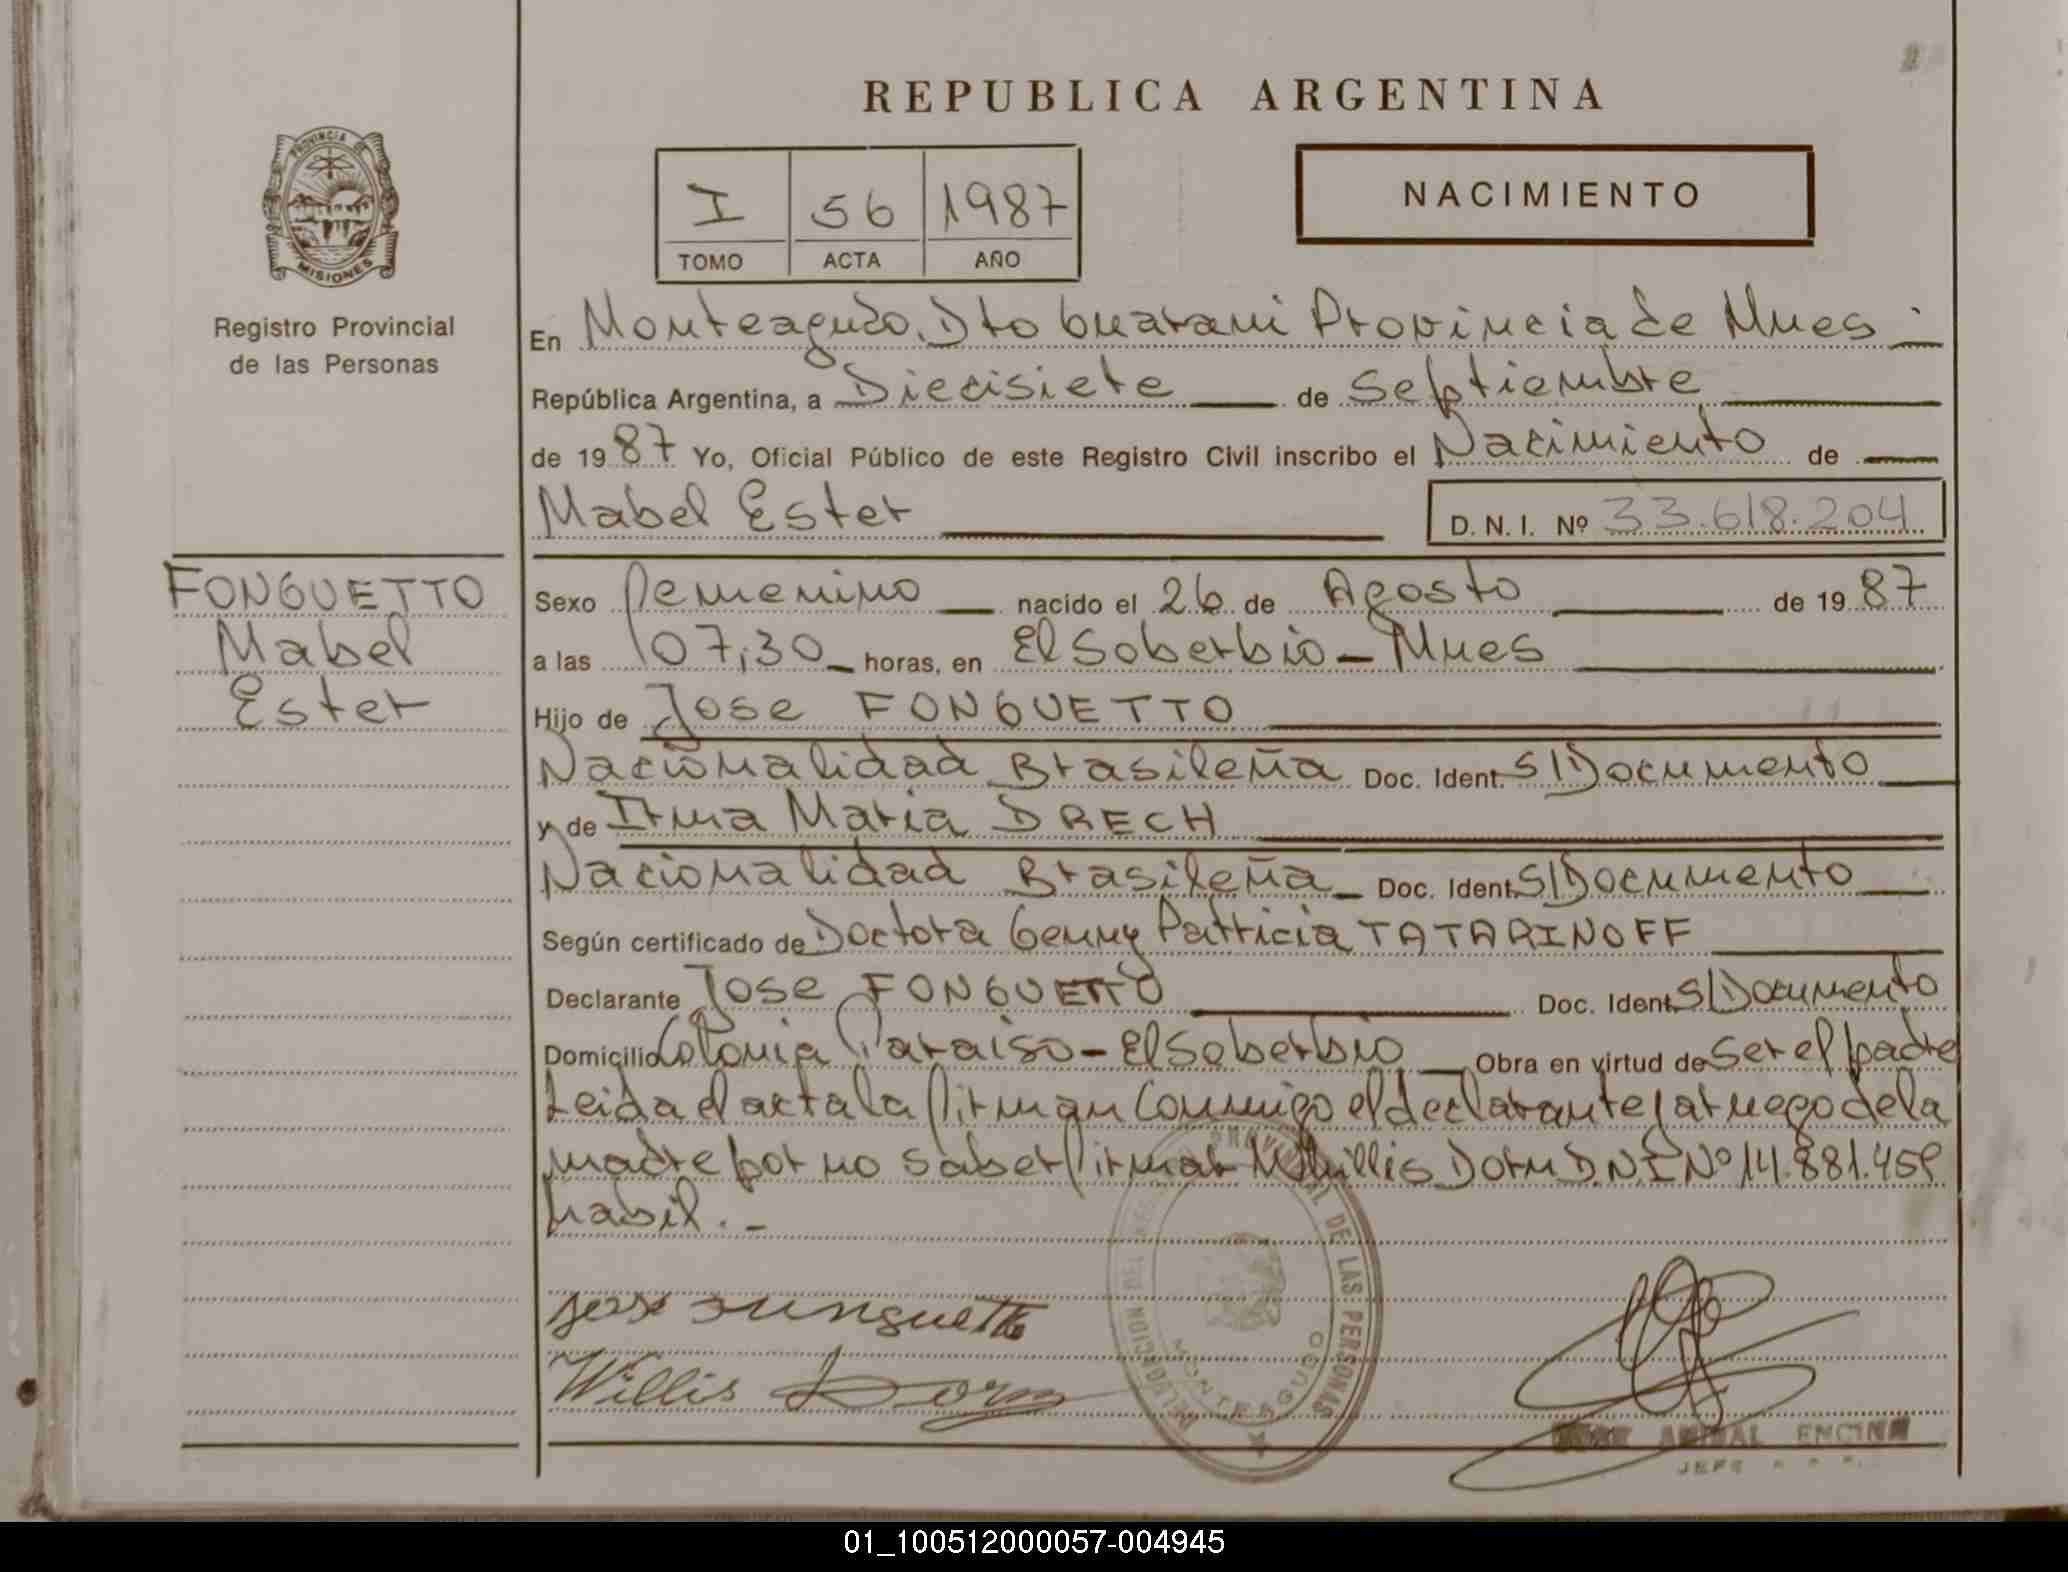 REPUBLICA ARGENTINA
PROVINCIA DE
MISIONES
Registro Provincial
de las Personas
I 56 1987
TOMO ACTA AÑO
NACIMIENTO
En Monteagudo, Dto Guarani Provincia de Mnes
República Argentina, a Diecisiete de Septiembre
de 1987 Yo, Oficial Público de este Registro Civil inscribo el Nacimiento de
Mabel Ester D. N. I. Nº 33.618.204
FONGUETTO
Mabel
Ester
Sexo femenino nacido el 26 de Agosto de 1987
a las 07,30 horas, en El Soberbio - Mnes
Hijo de Jose FONGUETTO
Nacionalidad Brasileña Doc. Ident. S/Documento
y de Irma Maria DRECH
Nacionalidad Brasileña Doc. Ident. S/Documento
Según certificado de Doctora Genny Patricia TATARINOFF
Declarante Jose FONGUETTO Doc. Ident. S/Documento
Domicilio Colonia Paraiso - El Soberbio Obra en virtud de ser el padre
Leida el acta la firman conmigo el declarante, a ruego de la
madre por no saber firmar Willis Dorn D.N.I Nº 14.881.459
habil.-
Willis Dorn
PROVINCIAL DE LAS PERSONAS
DELEGACION DEL
MONTEAGUDO
ANIBAL ENCINA
JEFE
01_100512000057-004945